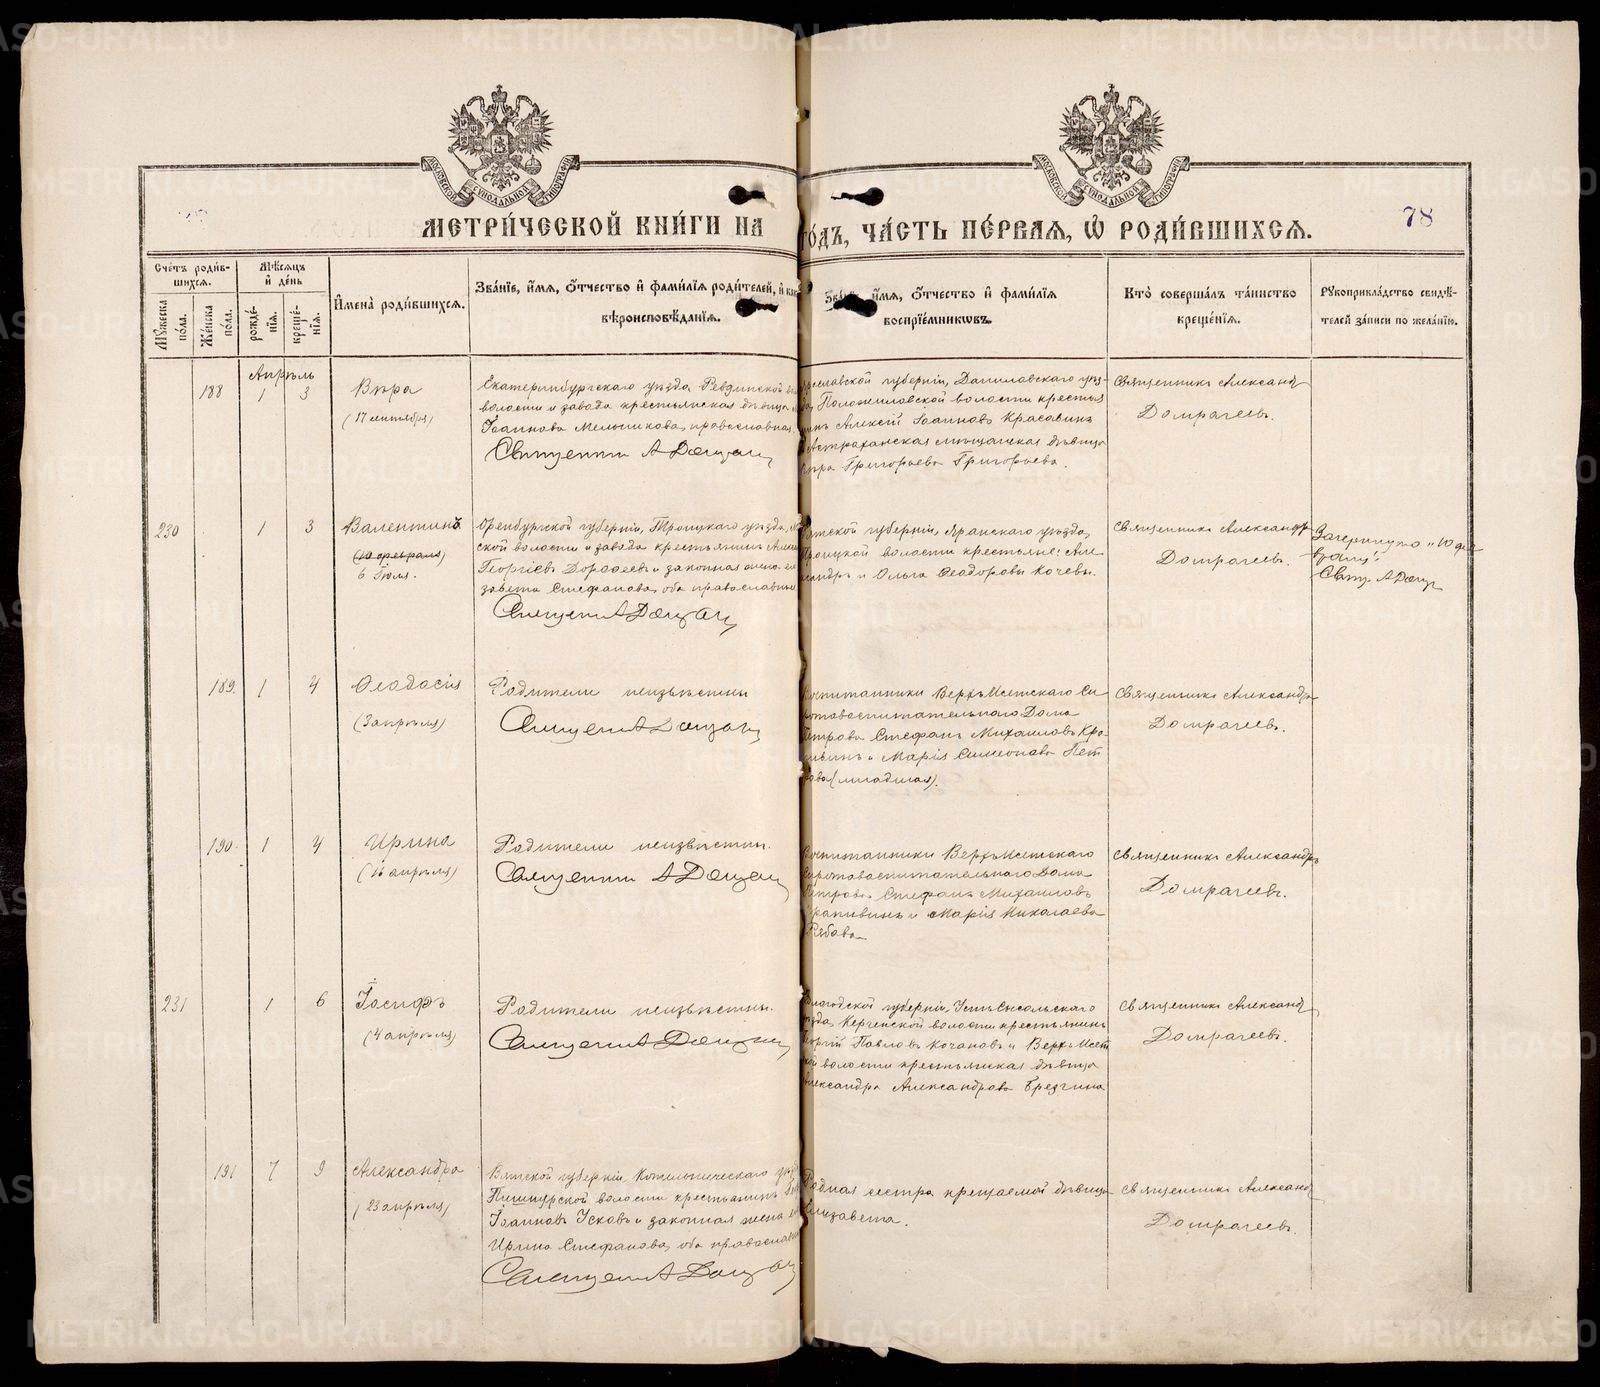 МЕТРИ́ЧЕСКОЙ КНИ́ГИ НА
ГО́ДЪ, ЧА́СТЬ ПЕ́РВАЯ, Ѡ РОДИ́ВШИХСЯ.
78
МОСКОВСКОЙ СѴНОДАЛЬНОЙ ТИПОГРАФІИ
МОСКОВСКОЙ СѴНОДАЛЬНОЙ ТИПОГРАФІИ
Сче́тъ роди́в-
шихся.
Мꙋжеска по́ла.
Же́нска по́ла.
Мѣ́сяцъ
и҆ де́нь
рожде́-
нїя.
креще́-
нїя.
И҆мена̀ роди́вшихся.
Зва́нїе, и҆́мя, ѻ҆́тчество и҆ фами́лїя роди́телей, и҆ как
вѣроисповѣ́данїя.
и҆́мя, ѻ҆́тчество и҆ фами́лїя
воспрїе́мникѡвъ.
Кто̀ соверша́лъ та́инство
креще́нїя.
Рꙋкоприкла́дство свидѣ́-
телей за́писи по жела́нїю.
Апрѣль
188 1 3
Вѣра
(17 сентября)
Екатеринбургскаго уѣзда, Ревдинской
волости и завода крестьянская дѣвица
Іоаннова Мельникова, православная.
Священникъ
Ярославской губерніи, Даниловскаго уѣз-
да, волости крестья
нинъ Алексій Іоанновъ Красавинъ
и Астраханская мѣщанская дѣвица
Вѣра Григорьева Григорьева.
Священникъ Александръ
Домрачевъ.
230 1 3
Валентинъ
(10 февраля)
6 Іюля.
Оренбургской губерніи, Троицкаго уѣзда,
ской волости и завода крестьянинъ
Георгіевъ Дорофеевъ и законная жена его
завета Стефанова, оба православные
Священникъ
Вятской губерніи, Яранскаго уѣзда,
Троицкой волости крестьяне: Але-
ксандръ и Ольга Ѳеодоровы Кочевы.
Священникъ Александръ
Домрачевъ.
Зачеркнуто „10 фев
раля".
Свящ.
189. 1 4
Ѳеодосія
(3 апрѣля)
Родители неизвѣстны
Священникъ
Воспитанники Верхъ-Исетскаго Си-
ротовоспитательнаго Дома
Петрова Стефанъ Михаиловъ Кра-
пивинъ и Марія Симеонова Пет
рова (младшая).
Священникъ Александръ
Домрачевъ.
190. 1 4
Ирина
(16 апрѣля)
Родители неизвѣстны.
Священникъ
Воспитанники Верхъ-Исетскаго
Сиротовоспитательнаго Дома
Петрова Стефанъ Михаиловъ
Крапивинъ и Марія Николаева
Рябова
Священникъ Александръ
Домрачевъ.
231 1 6
Іосифъ
(4 апрѣля)
Родители неизвѣстны.
Священникъ
Вологодской губерніи, Усть-Сысольскаго
уѣзда, Керченской волости крестьянинъ
Георгій Павловъ Качановъ и Верхъ-Исет
ской волости крестьянская дѣвица
Александра Александрова Брезгина
Священникъ Александръ
Домрачевъ.
191 7 9
Александра
(23 апрѣля)
Вятской губерніи, Котельническаго уѣзда
волости крестьянинъ
Іоанновъ Усковъ и законная жена его
Ирина Стефанова, оба православные
Священникъ
Родная сестра крещаемой дѣвица
Елизавета.
Священникъ Александръ
Домрачевъ.
METRIKI.GASO-URAL.RU